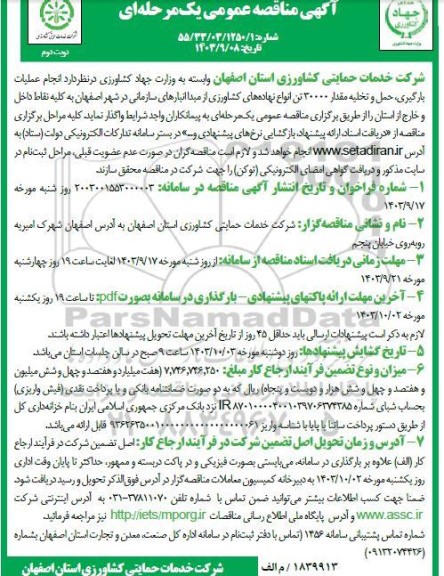 جهاد کشاورزی
آگهی مناقصه عمومی یک‌مرحله‌ای
شماره: ۵۵/۳۳/۰۳/۱۲۵۰/۱
تاریخ: ۱۴۰۳/۹/۰۸
نوبت دوم
شرکت خدمات حمایتی کشاورزی استان اصفهان وابسته به وزارت جهاد کشاورزی درنظردارد انجام عملیات
بارگیری، حمل و تخلیه مقدار ۳۰۰۰۰ تن انواع نهاده‌های کشاورزی از مبدا انبارهای سازمانی در شهر اصفهان به کلیه نقاط داخل
و خارج از استان را از طریق برگزاری مناقصه عمومی یک‌مرحله‌ای به پیمانکاران واجد شرایط واگذار نماید. کلیه مراحل برگزاری
مناقصه از «دریافت اسناد، ارائه پیشنهاد، بازگشایی نرخ‌های پیشنهادی و...» در بستر سامانه تدارکات الکترونیکی دولت (ستاد) به
آدرس www.setadiran.ir انجام خواهد شد و لازم است مناقصه‌گران در صورت عدم عضویت قبلی، مراحل ثبت‌نام در
سایت مذکور و دریافت گواهی امضای الکترونیکی (توکن) را جهت شرکت در مناقصه محقق سازند.
۱- شماره فراخوان و تاریخ انتشار آگهی مناقصه در سامانه: ۲۰۰۳۰۰۱۵۵۳۰۰۰۰۰۳ روز شنبه مورخه
۱۴۰۳/۹/۱۷
۲- نام و نشانی مناقصه‌گزار: شرکت خدمات حمایتی کشاورزی استان اصفهان به آدرس اصفهان شهرک امیریه
روبه‌روی خیابان پنجم
۳- مهلت زمانی دریافت اسناد مناقصه از سامانه: از روز شنبه مورخه ۱۴۰۳/۹/۱۷ لغایت ساعت ۱۹ روز چهارشنبه
مورخه ۱۴۰۳/۹/۲۱
۴- آخرین مهلت ارائه پاکتهای پیشنهادی - بارگذاری در سامانه بصورت pdf: تا ساعت ۱۹ روز یکشنبه
مورخه ۱۴۰۳/۱۰/۰۲
لازم به ذکر است پیشنهادات ارسالی باید حداقل ۴۵ روز از تاریخ آخرین مهلت تحویل پیشنهادها اعتبار داشته باشند.
۵- تاریخ گشایش پیشنهادها: روز دوشنبه مورخه ۱۴۰۳/۱۰/۰۳ ساعت ۹ صبح در سالن جلسات استان می‌باشد.
۶- میزان و نوع تضمین فرآیند ارجاع کار مبلغ: ۷,۷۴۶,۷۴۶,۲۵۰ (هفت میلیارد و هفتصد و چهل و شش میلیون
و هفتصد و چهل و شش هزار و دویست و پنجاه) ریال که به دو صورت ضمانتنامه بانکی و یا پرداخت نقدی (فیش واریزی)
بحساب شبای شماره نزد بانک مرکزی جمهوری اسلامی ایران بنام خزانه‌داری کل
از طریق دستور پرداخت ساتنا یا پایا با شناسه واریز قابل ارائه می‌باشد.
۷- آدرس و زمان تحویل اصل تضمین شرکت در فرآیند ارجاع کار: اصل تضمین شرکت در فرآیند ارجاع
کار (الف) علاوه بر بارگذاری در سامانه، می‌بایستی بصورت فیزیکی و در پاکت دربسته و ممهور، حداکثر تا پایان وقت اداری
روز یکشنبه مورخه ۱۴۰۳/۱۰/۰۲ به دبیرخانه کمیسیون معاملات مناقصه‌گزار در آدرس فوق‌الذکر تحویل و رسید دریافت شود.
ضمنا جهت کسب اطلاعات بیشتر می‌توانید ضمن تماس با شماره تلفن ۳۷۸۱۱۰۷۰-۰۳۱ به آدرس اینترنتی شرکت
www.assc.ir و آدرس پایگاه ملی اطلاع رسانی مناقصات http://iets/mporg.ir نیز مراجعه فرمائید.
شماره تماس پشتیبانی سامانه ۱۴۵۶ (تماس با دفتر ثبت‌نام در سامانه اداره کل صنعت، معدن و تجارت استان اصفهان بشماره
۰۹۱۳۲۰۷۴۴۲۶)
۱۸۳۹۹۱۳ / م الف
شرکت خدمات حمایتی کشاورزی استان اصفهان
ParsNamadData